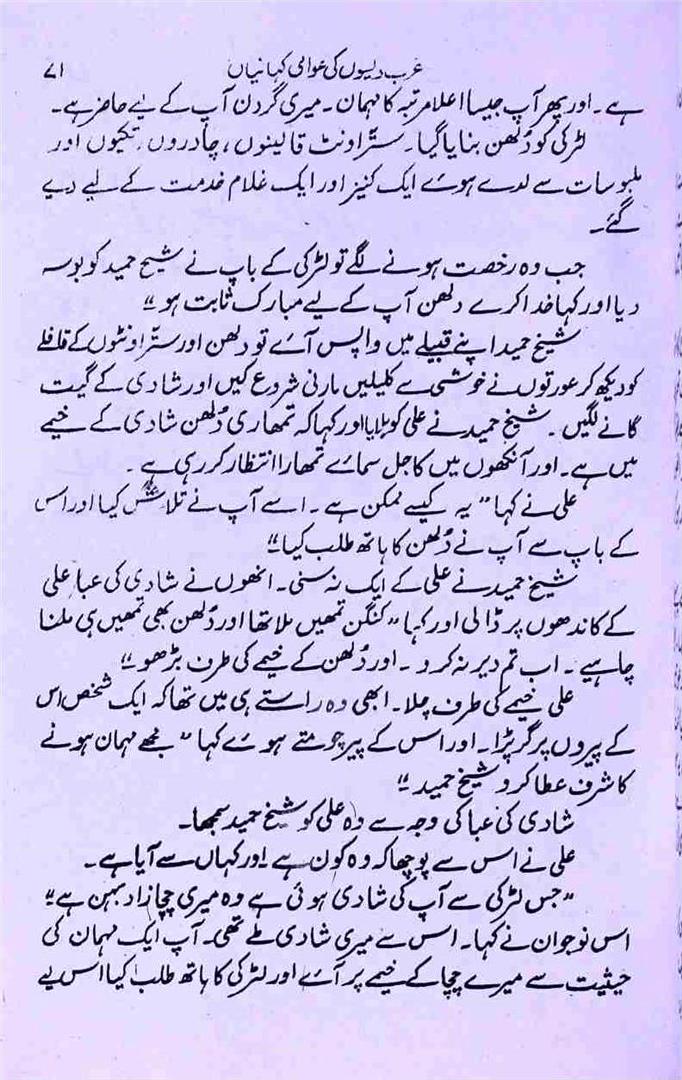 عرب دلیوں کی عوامی کہانیاں ۷۱
ہے۔ اور پھر آپ جیسا اعلا مرتبہ کا مہمان۔ میری گردن آپ کے لیے حاضر ہے۔
لڑکی کو دُلھن بنایا گیا۔ ستر اونٹ قالینوں، چادروں، تکیوں اور
ملبوسات سے لدے ہوئے ایک کنیز اور ایک غلام خدمت کے لیے دیے
گئے۔
جب وہ رخصت ہونے لگے تو لڑکی کے باپ نے شیخ حمید کو بوسہ
دیا اور کہا خدا کرے دلھن آپ کے لیے مبارک ثابت ہو"
شیخ حمید اپنے قبیلے میں واپس آئے تو دلھن اور ستر اونٹوں کے قافلے
کو دیکھ کر عورتوں نے خوشی سے کلیلیں مارنی شروع کیں اور شادی کے گیت
گانے لگیں۔ شیخ حمید نے علی کو بلایا اور کہا کہ تمھاری دُلھن شادی کے خیمے
میں ہے۔ اور آنکھوں میں کاجل سمائے تمھارا انتظار کر رہی ہے۔
علی نے کہا "یہ کیسے ممکن ہے۔ اسے آپ نے تلاش کیا اور اس
کے باپ سے آپ نے دُلھن کا ہاتھ طلب کیا"
شیخ حمید نے علی کے ایک نہ سنی۔ انھوں نے شادی کی عبا علی
کے کاندھوں پر ڈالی اور کہا "کنگن تمھیں ملا تھا اور دُلھن بھی تمھیں ہی ملنا
چاہیے۔ اب تم دیر نہ کرو۔ اور دُلھن کے خیمے کی طرف بڑھو"
علی خیمے کی طرف چلا۔ ابھی وہ راستے ہی میں تھا کہ ایک شخص اس
کے پیروں پر گر پڑا۔ اور اس کے پیر چومتے ہوئے کہا "مجھے مہمان ہونے
کا شرف عطا کرو شیخ حمید"
شادی کی عبا کی وجہ سے وہ علی کو شیخ حمید سمجھا۔
علی نے اس سے پوچھا کہ وہ کون ہے اور کہاں سے آیا ہے۔
"جس لڑکی سے آپ کی شادی ہوئی ہے وہ میری چچا زاد بہن ہے"
اس نوجوان نے کہا۔ اس سے میری شادی طے تھی۔ آپ ایک مہمان کی
حیثیت سے میرے چچا کے خیمے پر آئے اور لڑکی کا ہاتھ طلب کیا اس لیے